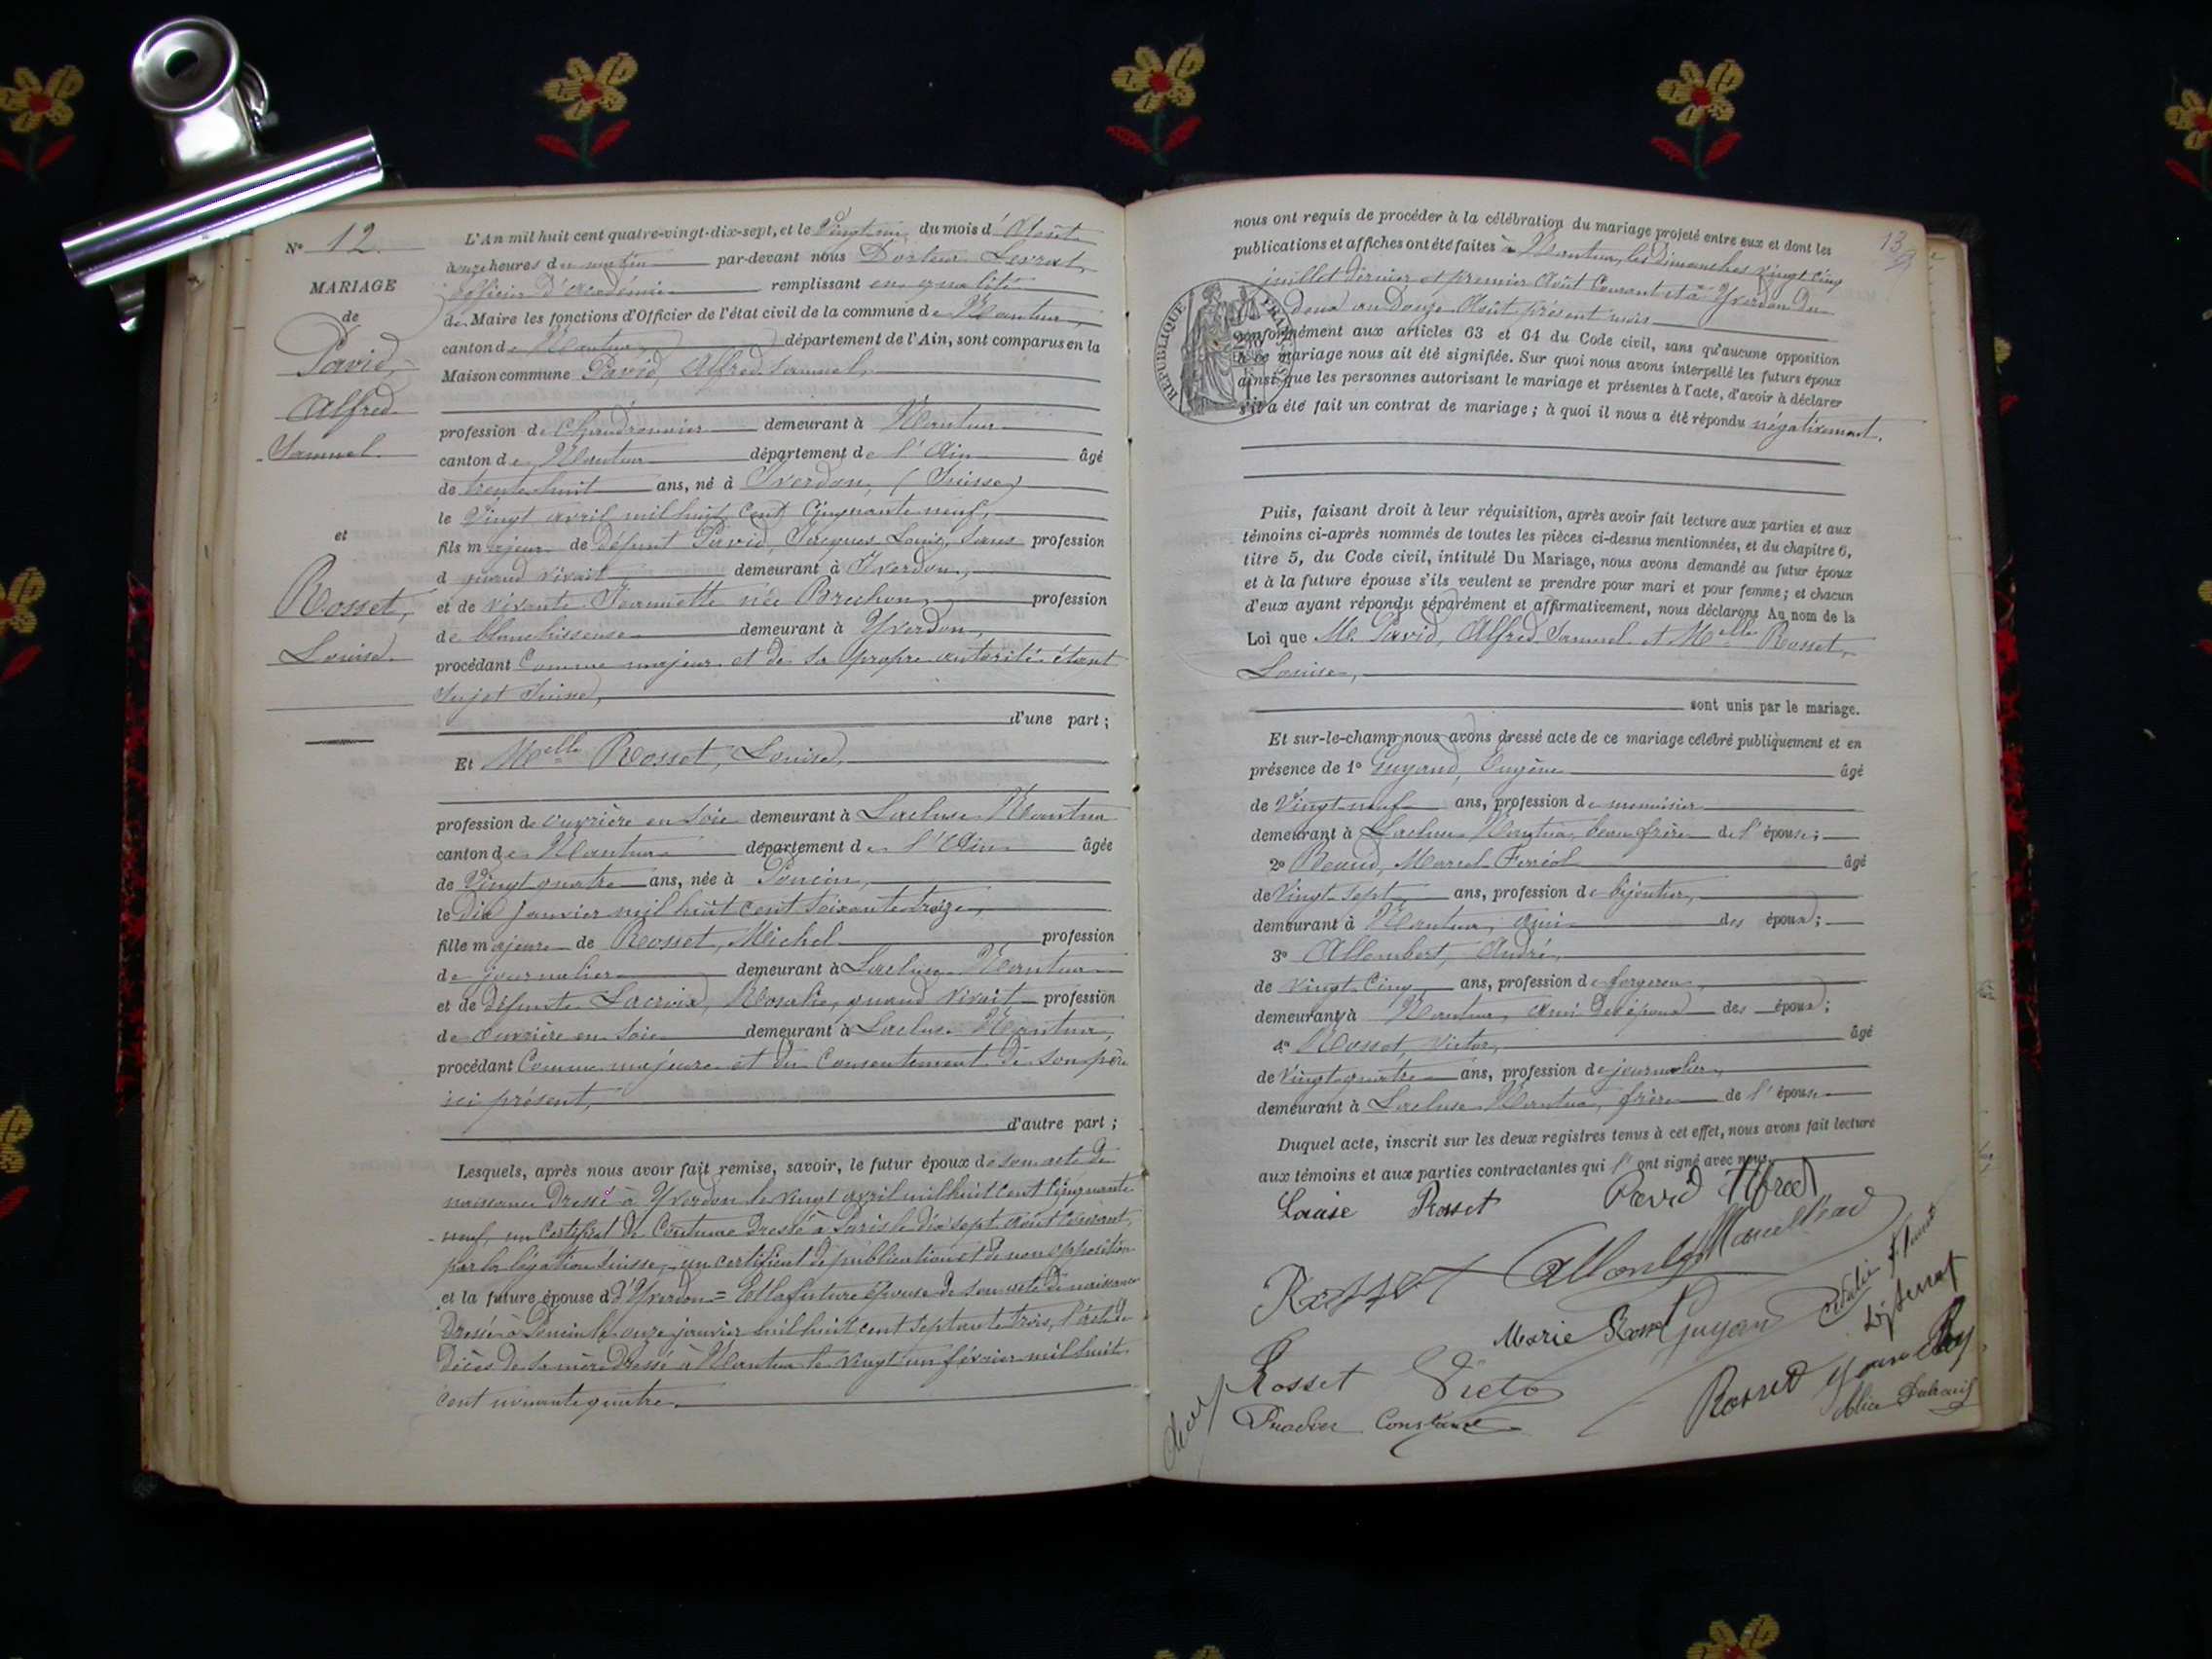 N° 12.
MARIAGE
de
David,
Alfred
Samuel.
et
Rosset,
Louise.
L'An mil huit cent quatre-vingt-dix-sept, et le vingt un du mois d'Août
onze heures du matin par-devant nous Levrat,
officier d'Académie remplissant en qualité
de Maire les fonctions d'Officier de l'état civil de la commune de Nantua,
canton de Nantua, département de l'Ain, sont comparus en la
Maison commune David, Alfred Samuel,
profession de Chaudronnier demeurant à Nantua
canton de Nantua département de l'Ain âgé
de trente huit ans, né à Yverdon, (Suisse)
le vingt avril mil huit cent cinquante neuf,
fils majeur de défunt David, Jacques Louis, sans profession
d quand vivait demeurant à Yverdon,
et de vivante Jeannette née profession
de blanchisseuse demeurant à Yverdon,
procédant comme majeur et de sa propre autorité étant
sujet suisse,
d'une part;
Et Melle Rosset, Louise,
profession de ouvrière en soie demeurant à Lacluse Nantua
canton de Nantua département de l'Ain âgée
de vingt quatre ans, née à Poncin,
le dix janvier mil huit cent soixante treize,
fille majeure de Rosset, Michel profession
de journalier demeurant à Lacluse Nantua
et de défunte Lacroix, Rosalie, quand vivait profession
de ouvrière en soie demeurant à Lacluse Nantua,
procédant comme majeure et du consentement de son père
ici présent,
d'autre part;
Lesquels, après nous avoir fait remise, savoir, le futur époux de son acte de
naissance dressé à Yverdon le vingt avril mil huit cent cinquante
neuf, un certificat de coutume dressé à Paris le dix sept août courant,
par la légation suisse, un certificat de publication et de non opposition
et la future épouse d d'Yverdon = Et la future épouse de son acte de naissance
dressé à Poncin le onze janvier mil huit cent septante trois, l'acte de
décès de sa mère dressé à Nantua le vingt un février mil huit
cent nonante quatre.
13
nous ont requis de procéder à la célébration du mariage projeté entre eux et dont les
publications et affiches ont été faites à Nantua, les dimanches vingt cinq
juillet dernier et premier Août courant et à Yverdon du
deux au douze Août présent mois
conformément aux articles 63 et 64 du Code civil, sans qu'aucune opposition
à ce mariage nous ait été signifiée. Sur quoi nous avons interpellé les futurs époux
ainsi que les personnes autorisant le mariage et présentes à l'acte, d'avoir à déclarer
s'il a été fait un contrat de mariage; à quoi il nous a été répondu négativement.
RÉPUBLIQUE FRANÇAISE
Puis, faisant droit à leur réquisition, après avoir fait lecture aux parties et aux
témoins ci-après nommés de toutes les pièces ci-dessus mentionnées, et du chapitre 6,
titre 5, du Code civil, intitulé Du Mariage, nous avons demandé au futur époux
et à la future épouse s'ils veulent se prendre pour mari et pour femme; et chacun
d'eux ayant répondu séparément et affirmativement, nous déclarons Au nom de la
Loi que Mr David, Alfred Samuel et Melle Rosset,
Louise,
sont unis par le mariage.
Et sur-le-champ nous avons dressé acte de ce mariage célébré publiquement et en
présence de 1° Guyand, Eugène âgé
de vingt neuf ans, profession de menuisier
demeurant à Lacluse Nantua, beau frère de l'épouse;
2° Marcel Ferréol âgé
de vingt sept ans, profession de bijoutier,
demeurant à Nantua, ami des époux;
3° Allombert, André,
de vingt cinq ans, profession de forgeron,
demeurant à Nantua, ami des époux des époux;
4° Rosset, Victor, âgé
de vingt quatre ans, profession de journalier,
demeurant à Lacluse Nantua, frère de l'épouse
Duquel acte, inscrit sur les deux registres tenus à cet effet, nous avons fait lecture
aux témoins et aux parties contractantes qui l' ont signé avec nous.
Louise Rosset David Alfred
Rosset
Marie Rosset Guyand
Rosset Victor
Constance
Rosset
Alice